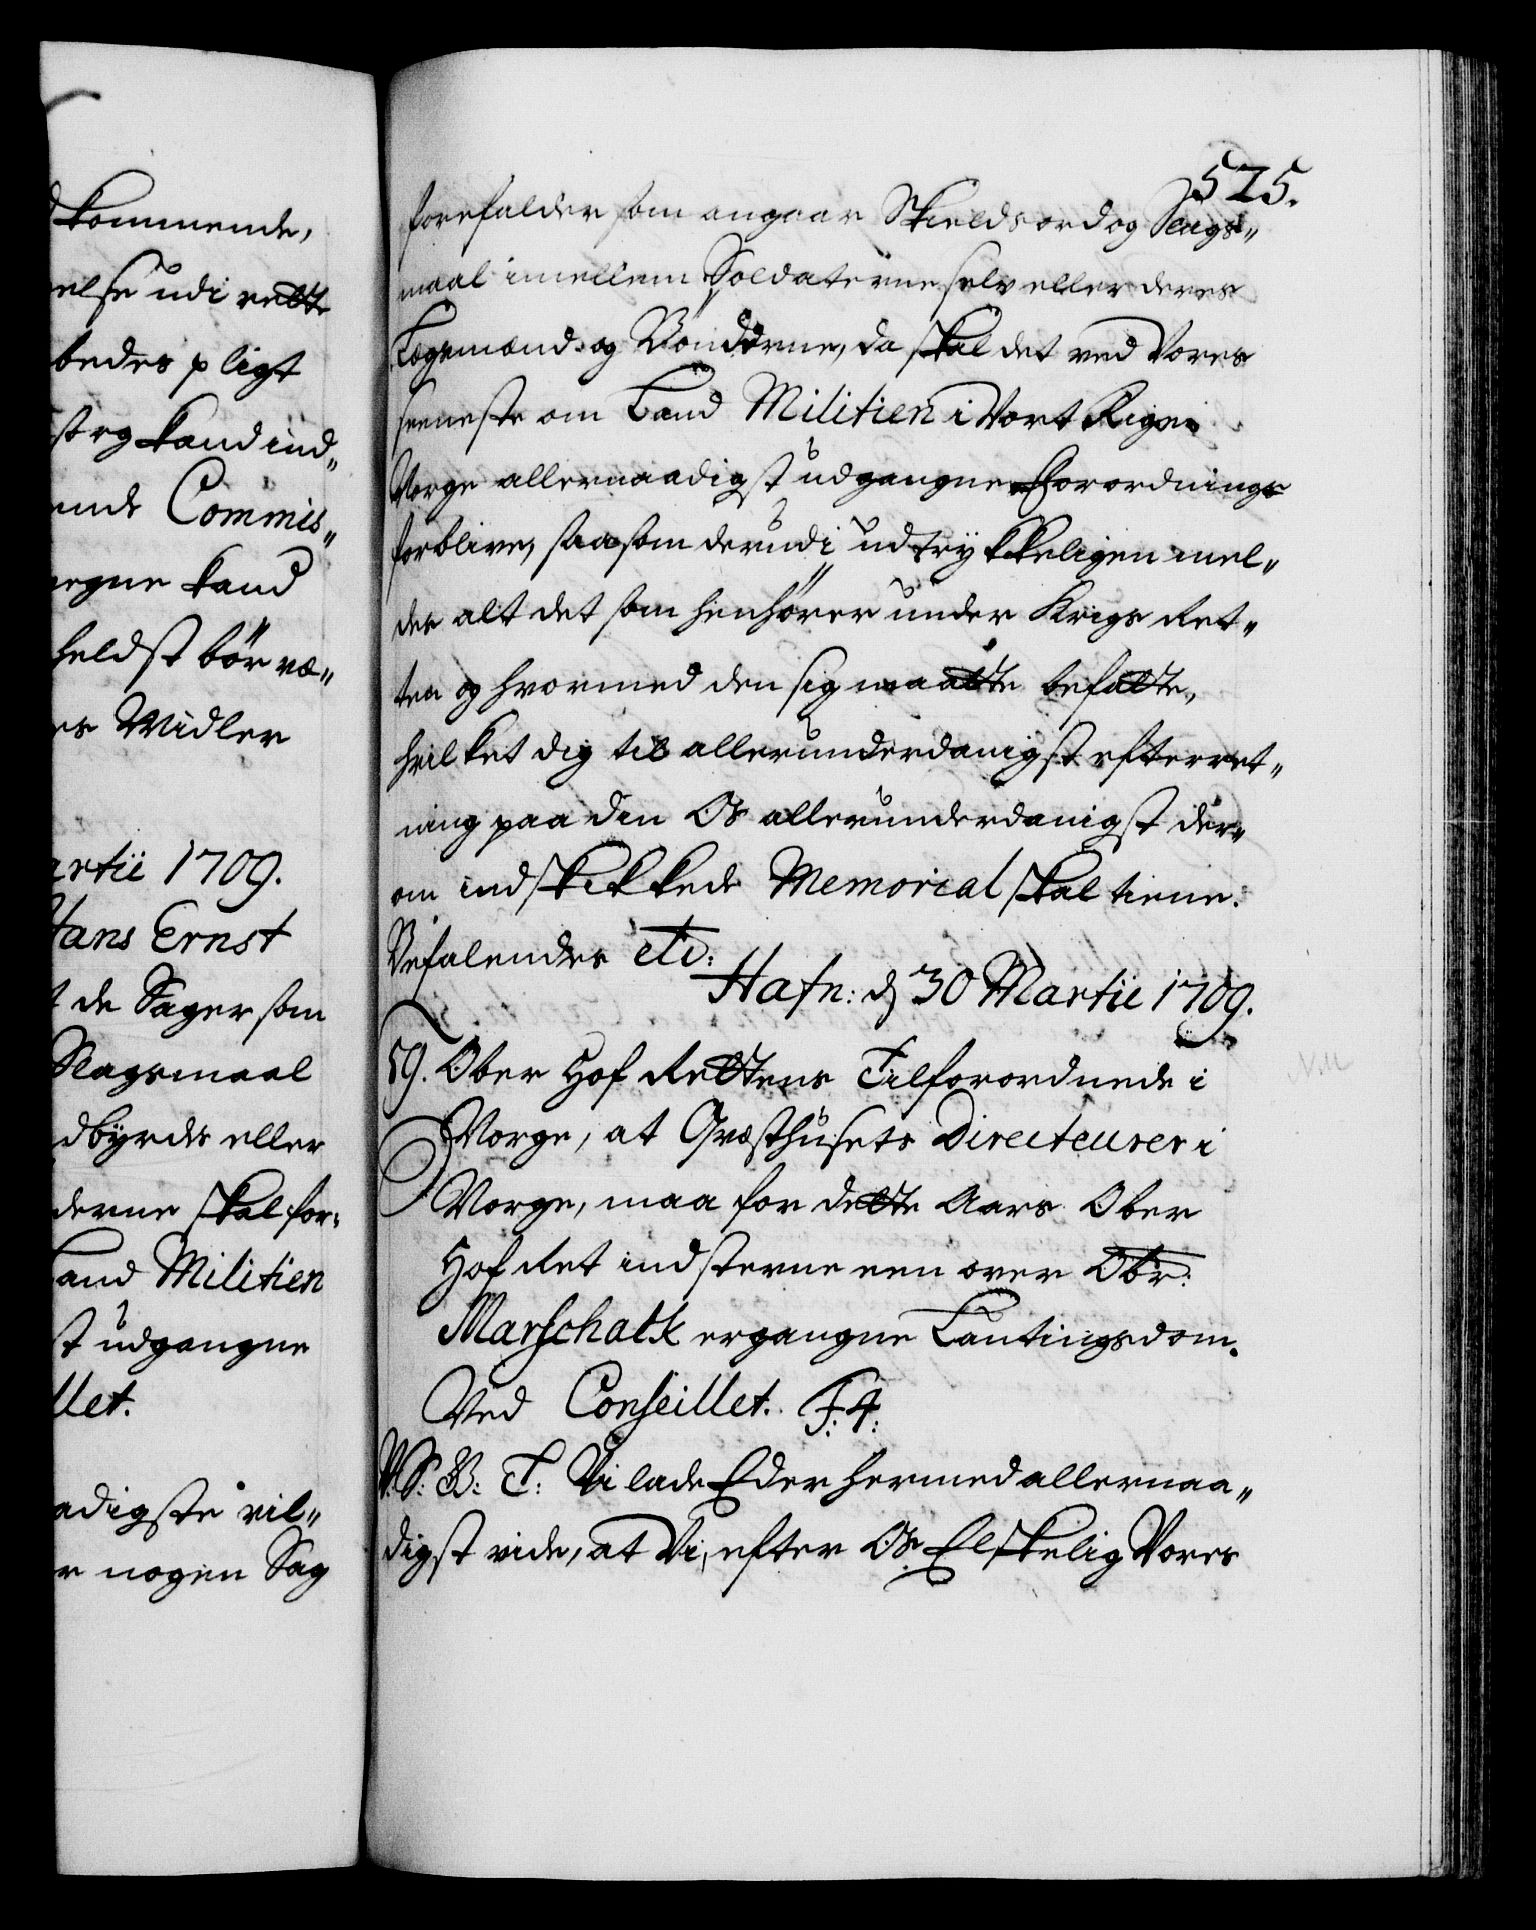 dkommende,
else udi rette
bedes pligt
st og kand ind„
ende Commis„
egne kand
heldst bör væ„
es Midler
artii 1709.
Hans Ernst
t de Sager som
Slagsmaal
dbyrdes eller
derne skal for„
Land Militien
st udgangne
llet.
adigste vil„
r nogen Sag
525.
forefalder som angaar Skieldsord og Slags„
maal imellem Soldaterne selv eller deres
Lægsmænd og Bönderne, da skal det ved Vores
seeneste om Land Militien i Vort Rige
Norge allernaadigst udgangne Forordning
forblive, saasom derudi udtrykkeligen mel„
des alt det som henhører under Krigs Ret„
ten og hvormed den sig maatte befatte,
hvilket dig til allerunderdanigst efterret„
ning paa den Os allerunderdanigst der„
om indskikkede Memorial skal tiene.
Befalendes etc:
Hafn: d 30 Martii 1709.
59. Ober Hof Rettens Tilforordnede i
Norge, at Qvæsthusets Directeurer i
Norge, maa for dette Aars Ober
Hof Ret indsterne een over Obr:
Marschalk ergangne Lantingsdom.
Ved Conseillet. F: 4:
V: S: B: T: Vi lade Eder hermed allernaa„
digst vide, at Vi, efter Os Elskelig Vores